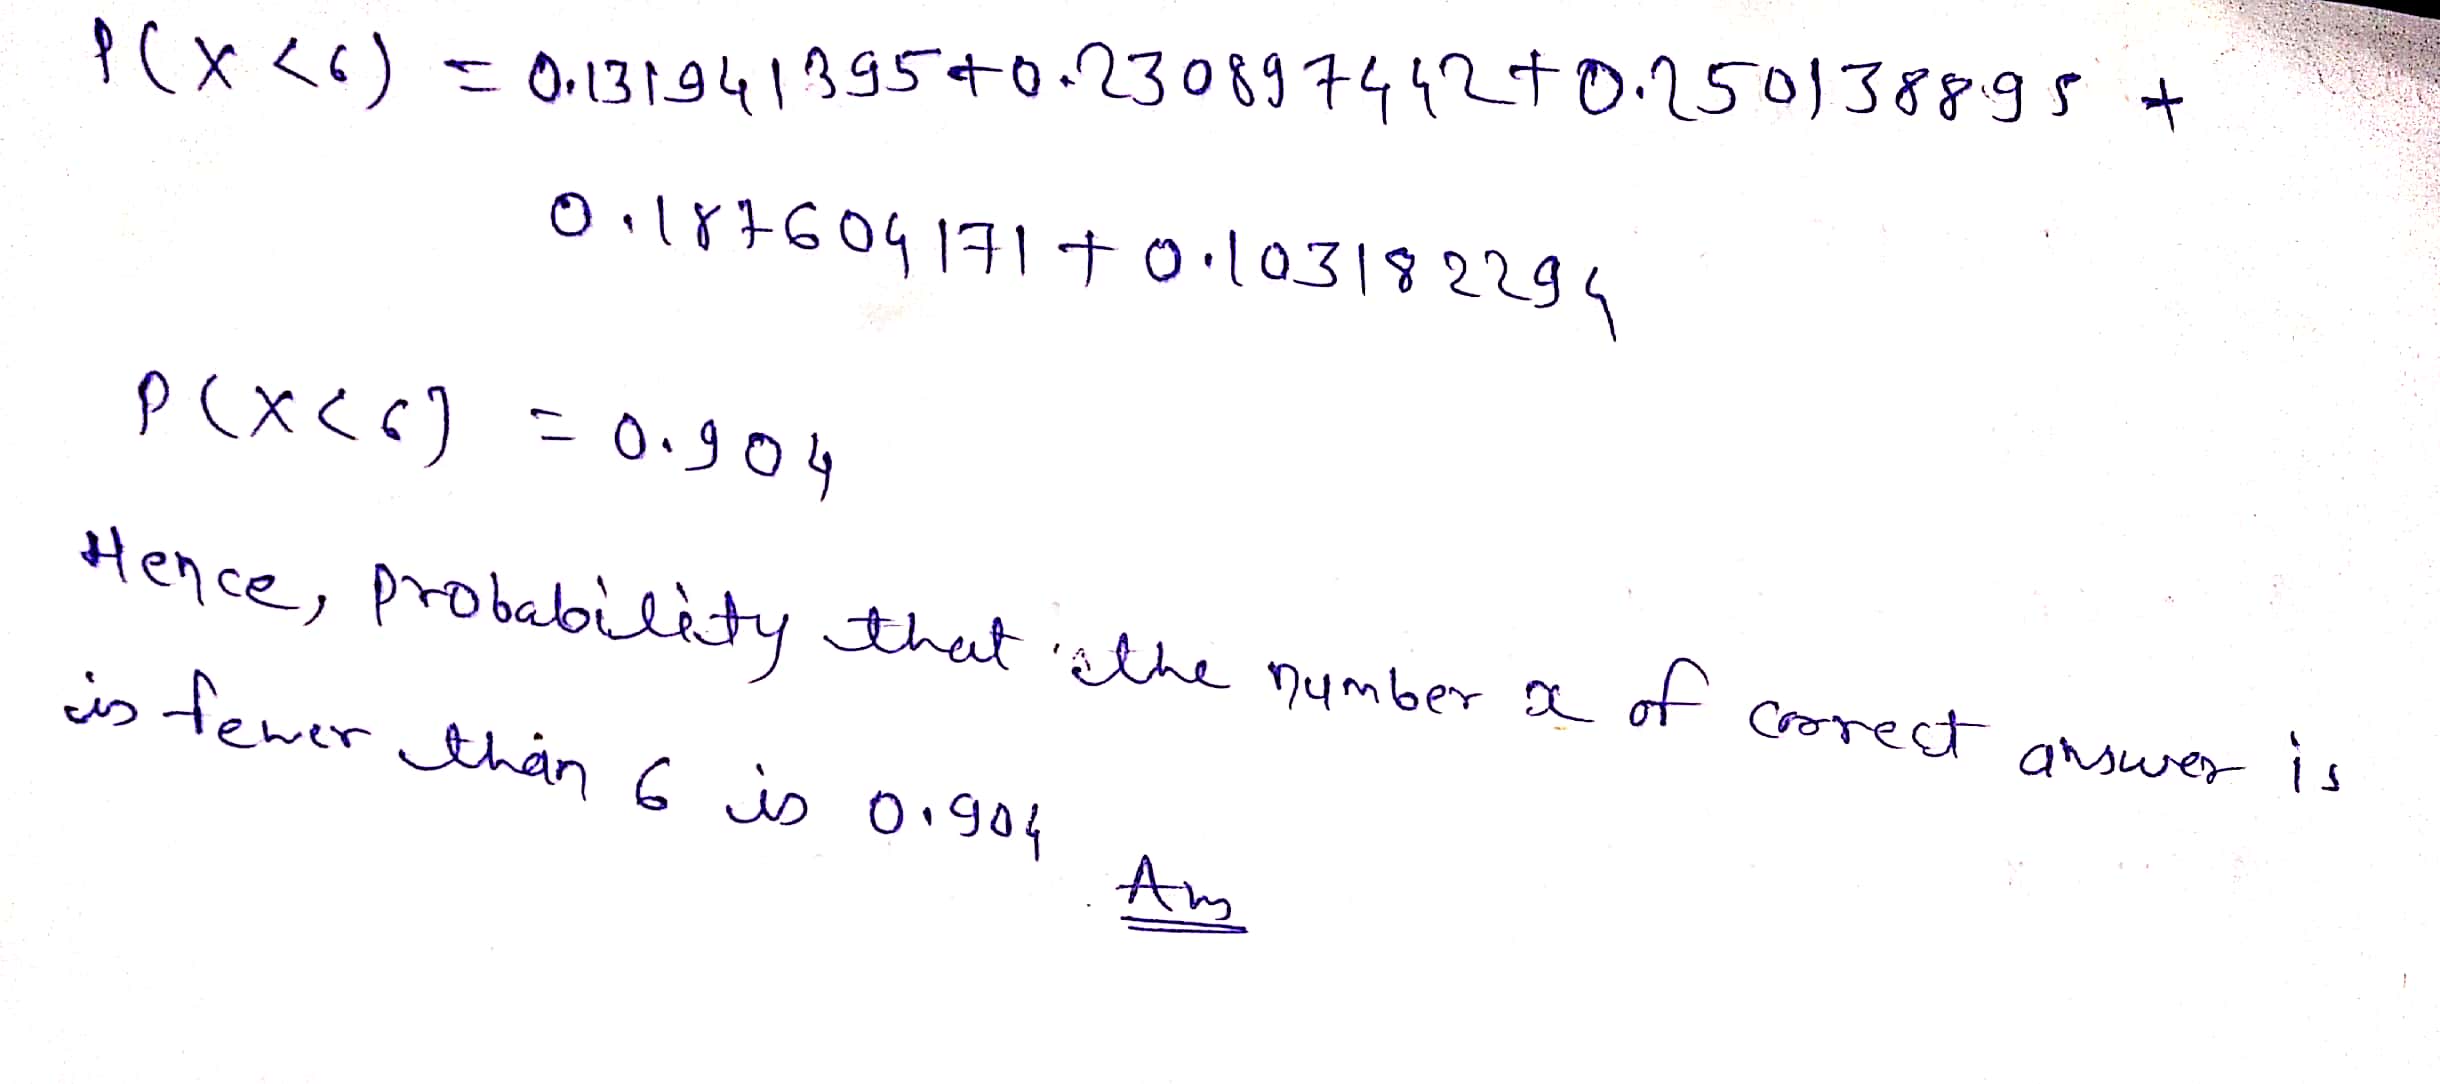 P(X<6) = 0.131941395+0.230897442+0.250138895 +
0.187604171 + 0.103182294
P(X<6) = 0.904
Hence, probability that the number x of correct answer is
is fewer than 6 is 0.904
Ans